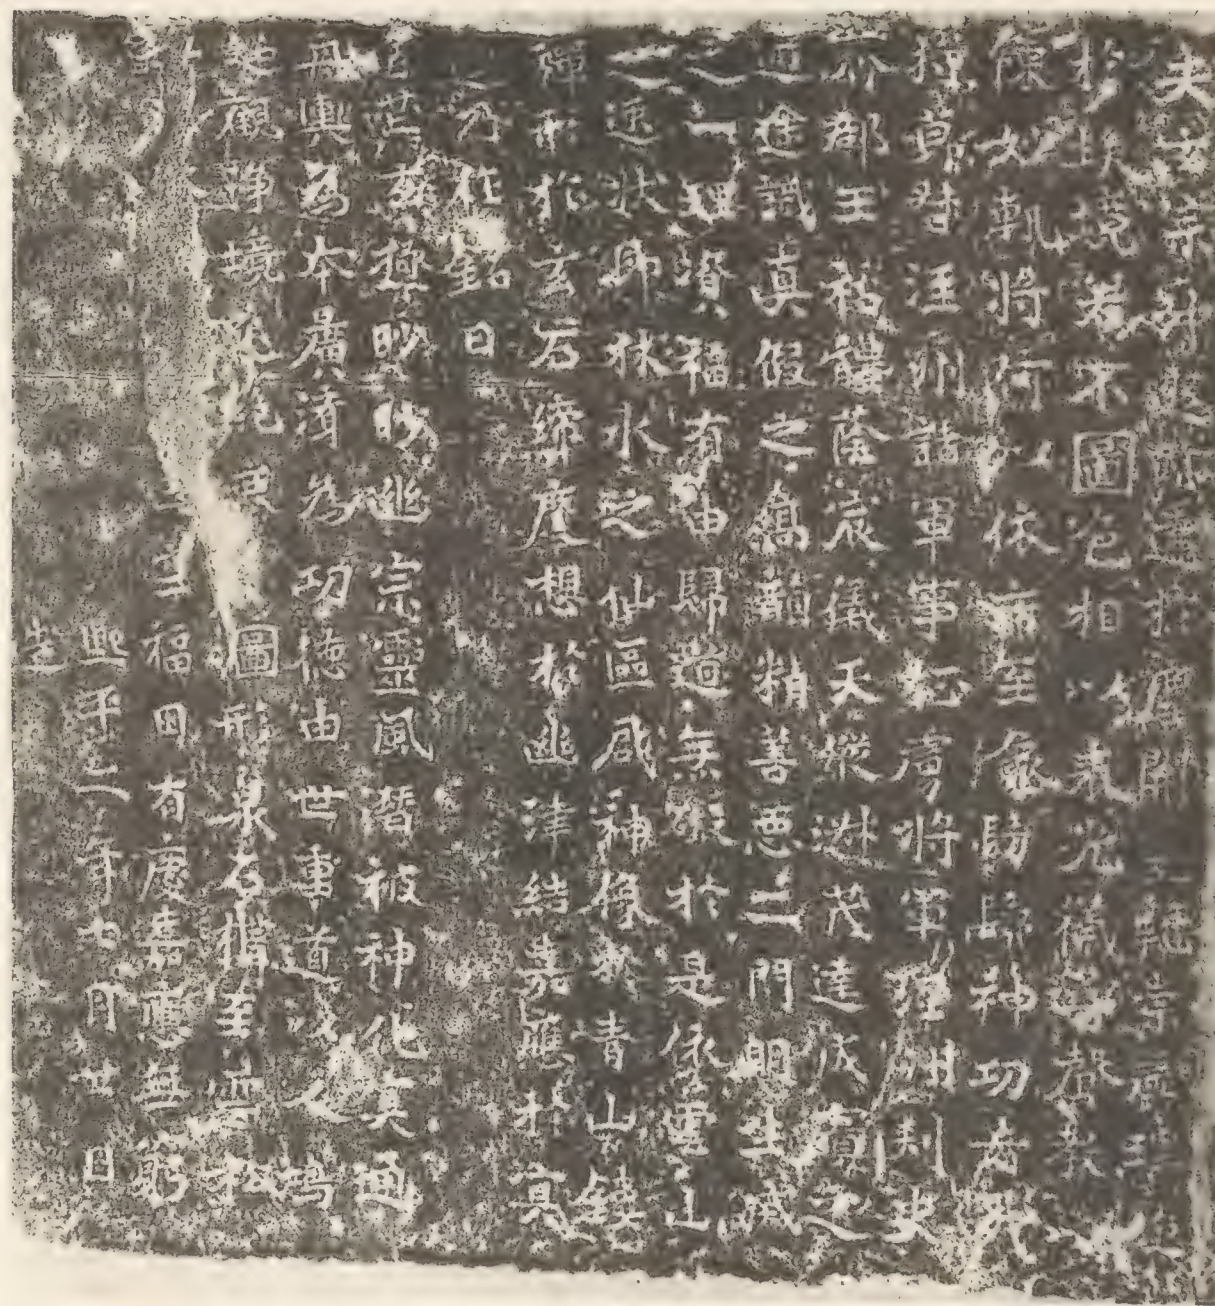 夫玄宗沖邈迹遠於塵關靈範崇虛理
於埃境若不圖色相以表光儀尋聲教以
陳妙軌將何以依希至像髣髴神功者哉
持節督涇州諸軍事征虜將軍涇州刺史
齊郡王祐體蔭宸儀天縱淵茂達成實之
通途識真假之高韻精善惡二門明生滅
之一理資福有由歸道無礙於是依雲山
之逸狀即林水之仙區啟神像於青山鏤
禪形於玄石締慶想於幽津結嘉應於冥
運乃作銘曰
茫茫玄極眇眇幽宗靈風潛被神化冥通
舟輿為本廣濟為功德由世重道以人鴻
超觀淨境圖形泉石構至雲松
福田有慶嘉應無窮
熙平二年七月廿日
造